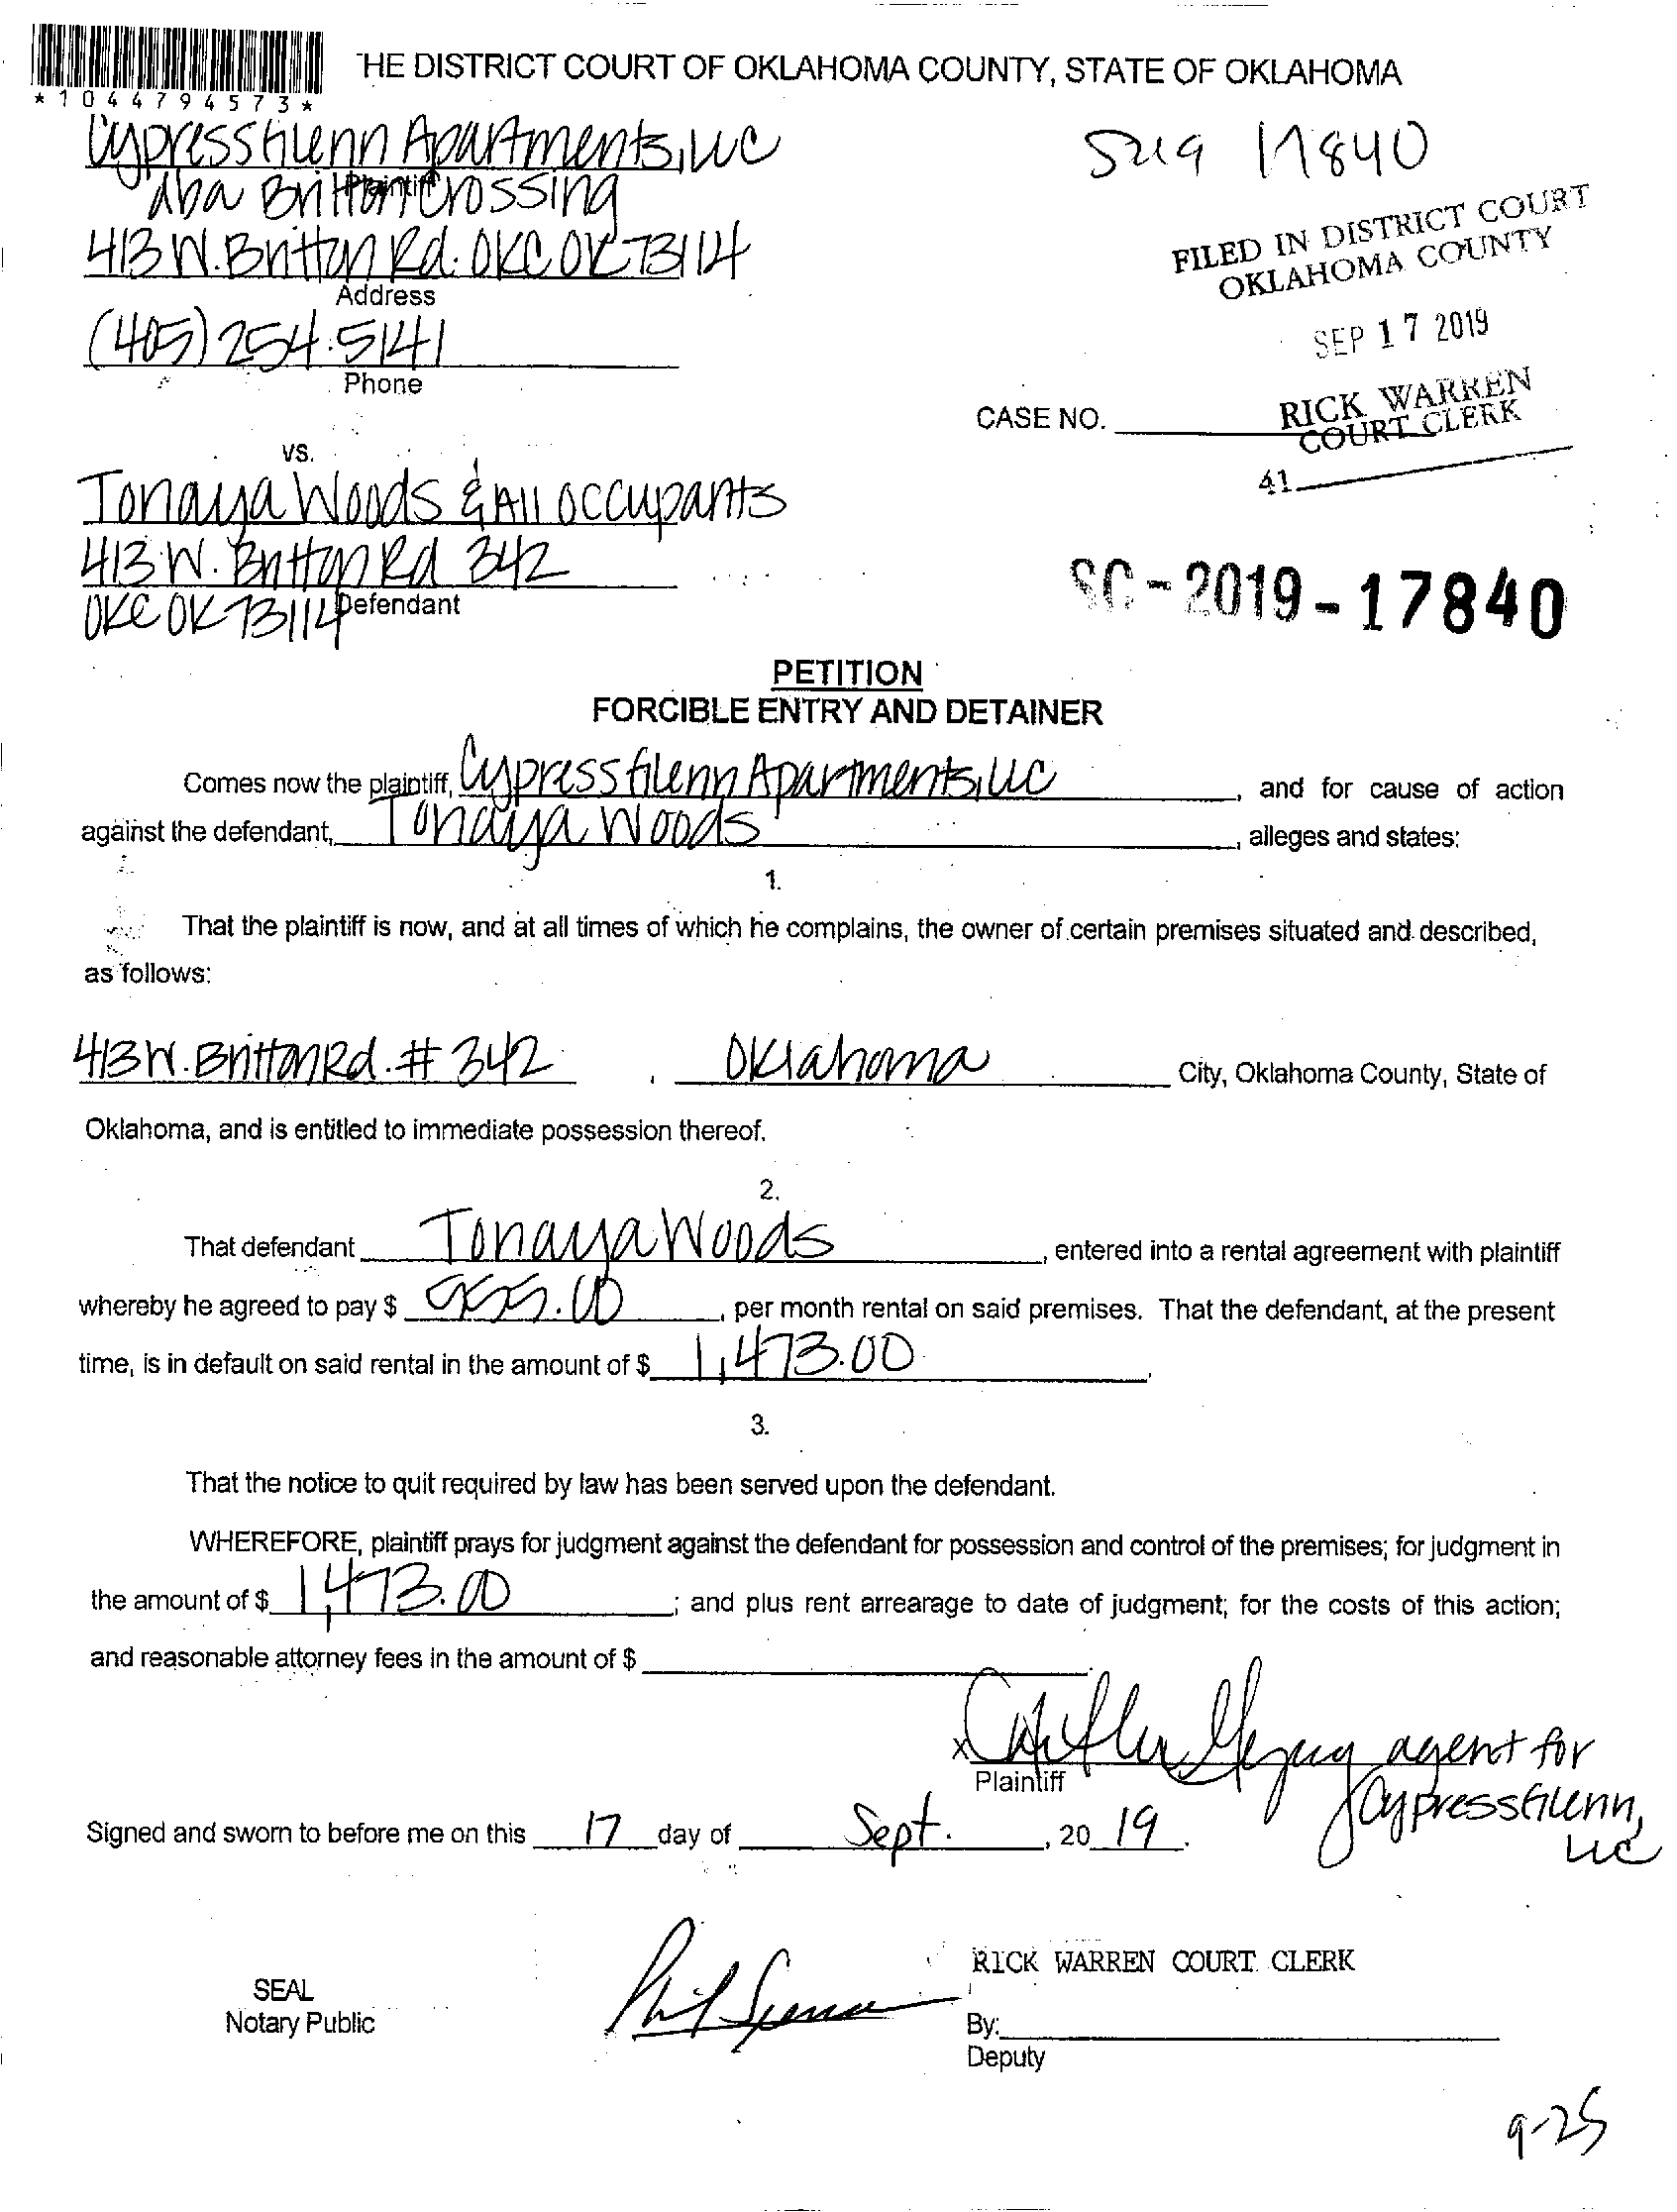 *1044794573*
HE DISTRICT COURT OF OKLAHOMA COUNTY, STATE OF OKLAHOMA
Cypress Glenn Apartments, LLC
dba Britton Crossing
Plaintiff
413 W. Britton Rd. OKC OK 73114
Address
(405) 254.5141
Phone
17840
FILED IN DISTRICT COURT
OKLAHOMA COUNTY
SEP 17 2019
RICK WARREN
COURT CLERK
CASE NO.
41
vs.
Tonaya Woods & All occupants
413 W. Britton Rd 342
OKC OK 73114
Defendant
SC-2019-17840
PETITION
FORCIBLE ENTRY AND DETAINER
Comes now the plaintiff, Cypress Glenn Apartments, LLC, and for cause of action
against the defendant, Tonaya Woods, alleges and states:
1.
That the plaintiff is now, and at all times of which he complains, the owner of certain premises situated and described,
as follows:
413 W. Britton Rd. # 342, Oklahoma City, Oklahoma County, State of
Oklahoma, and is entitled to immediate possession thereof.
2.
That defendant Tonaya Woods, entered into a rental agreement with plaintiff
whereby he agreed to pay $ , per month rental on said premises. That the defendant, at the present
time, is in default on said rental in the amount of $ 1,473.00.
3.
That the notice to quit required by law has been served upon the defendant.
WHEREFORE, plaintiff prays for judgment against the defendant for possession and control of the premises; for judgment in
the amount of $ 1,473.00; and plus rent arrearage to date of judgment; for the costs of this action;
and reasonable attorney fees in the amount of $
x agent for
Plaintiff
Cypress Glenn,
LLC
Signed and sworn to before me on this 17 day of Sept., 20 19.
RICK WARREN COURT CLERK
SEAL
Notary Public
By:
Deputy
9-25